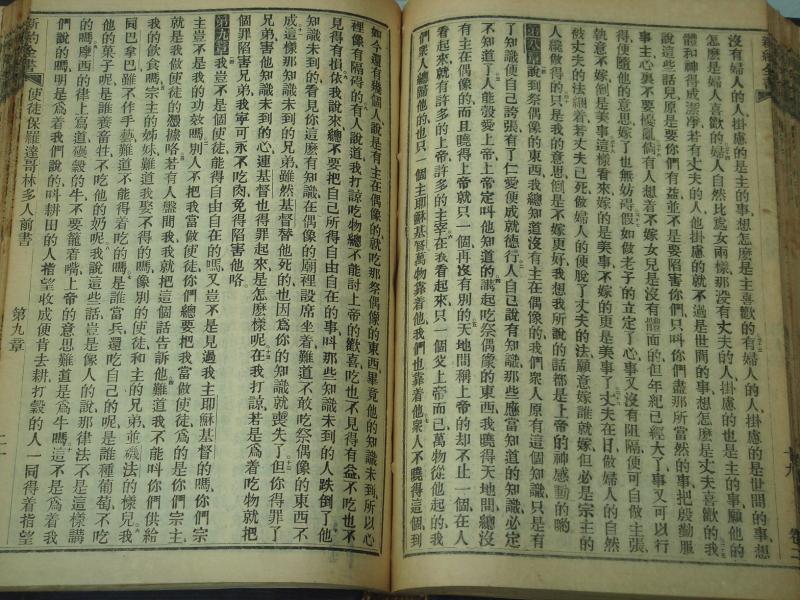 沒有婦人的人掛慮的是主的事、想怎麼是主喜歡的、有婦人的人掛慮的是世間的事、想
怎麼是婦人喜歡的、婦人自然比處女兩樣、那沒有丈夫的人掛慮的也是主的事、願他的
體和神得成潔淨、若有丈夫的人、他掛慮的就不過是世間的事、想怎麼是丈夫喜歡的、我
說這些話兒原是要你們有益、並不是要陷害你們、只叫你們盡那所當然的事、把殷勤服
事主、心裏不要擾亂、倘有人想着不嫁女兒是沒有體面的、但年紀已經大了、事又可以行
得、便隨他的意思嫁了也無妨碍、假如做老子的立定了心事又沒有阻隔、便可自做主張、
執意不嫁、倒是美事、這樣看來、嫁的是美事、不嫁的更是美事了、丈夫在日、做婦人的自然
被丈夫的法綑着、若丈夫已死、做婦人的便脫了丈夫的法、願意嫁誰就嫁、但必是宗主的
人纔做得的、只是我的意思倒是不嫁更好、我想我所說的話都是上帝的神感動的喲
第八章 說到祭偶像的東西、我總知道沒有主在偶像的、我們衆人原有這個知識、只是有
了知識、便自己誇張、有了仁愛、便成就德行、人自己說有知識、那些應當知道的、知識必定
不知道了、人能彀愛上帝、上帝定叫他知道的、講起吃祭偶像的東西、我曉得天地間總沒
有主在偶像的、而且曉得上帝就只一個、再沒有別的、天地間稱上帝的却不止一個、在人
看來就有許多的上帝、許多的主宰、在我看起來、只一個父上帝而已、萬物從他起的、我
們衆人總歸他的、也只一個主耶穌基督、萬物靠着他、我們也靠着他、衆人不曉得這個、到
如今還有幾個人、說是有主在偶像的、就吃那祭偶像的東西、畢竟他的知識未到、所以心
裡像有隔碍的、有人說道、我打諒吃物總不能討上帝的歡喜、吃也不見得有益、不吃也不
見得有損、依我說來、總不要把自己所得自由自在的事、叫那些知識未到的人跌倒了、他
知識未到的、看見你這麼有知識、在偶像的廟裡設席坐着、難道不敢吃祭偶像的東西、不
成這樣、那知識未到的兄弟、雖然基督替他死的、也因爲你的知識就喪失了、但你得罪了
兄弟、害他知識未到的心、連基督也得罪起來、是怎麼樣呢、在我打諒、若是爲着吃物、就把
個罪陷害兄弟、我寧可永不吃肉、免得陷害他咯
第九章 我豈不是個使徒、能得自由自在的嗎、又豈不是見過我主耶穌基督的嗎、你們宗
主豈不是我的功效嗎、別人不把我當做使徒、你們總要把我當做使徒、爲的是你們宗主、
就是我做使徒的憑據咯、若有人盤問我、我就把這個話告訴他、難道我不能叫你們供給
我的飲食嗎、宗主的姊妹、難道我娶不得的嗎、像別的使徒和主的兄弟、並磯法的樣兒、我
同巴拿巴雖不作手藝、難道不能得着吃的嗎、是誰當兵還吃自己的呢、是誰種葡萄不吃
他的菓子呢、是誰養畜牲不吃他的奶呢、我說這些話、豈是像人的說、那律法不是這樣講
的嗎、摩西的律上寫道、碾穀的牛不要籠着嘴、上帝的意思、難道是爲牛嗎、這不是爲着我
們說的嗎、明是爲着我們說的、叫耕田的人指望收成、便肯去耕、打穀的人一同得着指望
新約全書 使徒保羅達哥林多人前書 第九章